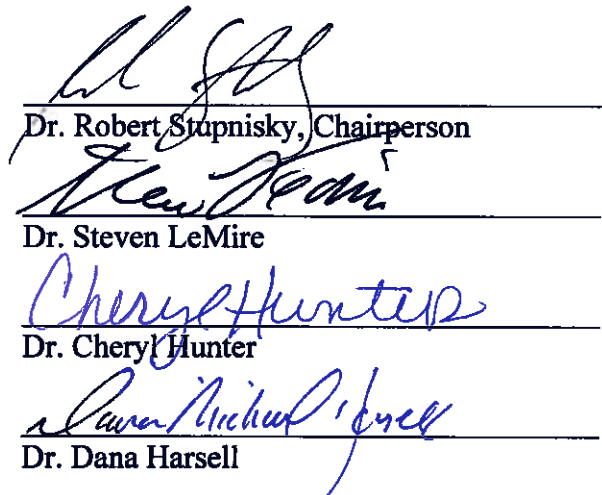 Dr. Robert Stupnisky, Chairperson
Dr. Steven LeMire
Cheryl Hunter
Dr. Cheryl Hunter
Dana Michael Harsell
Dr. Dana Harsell